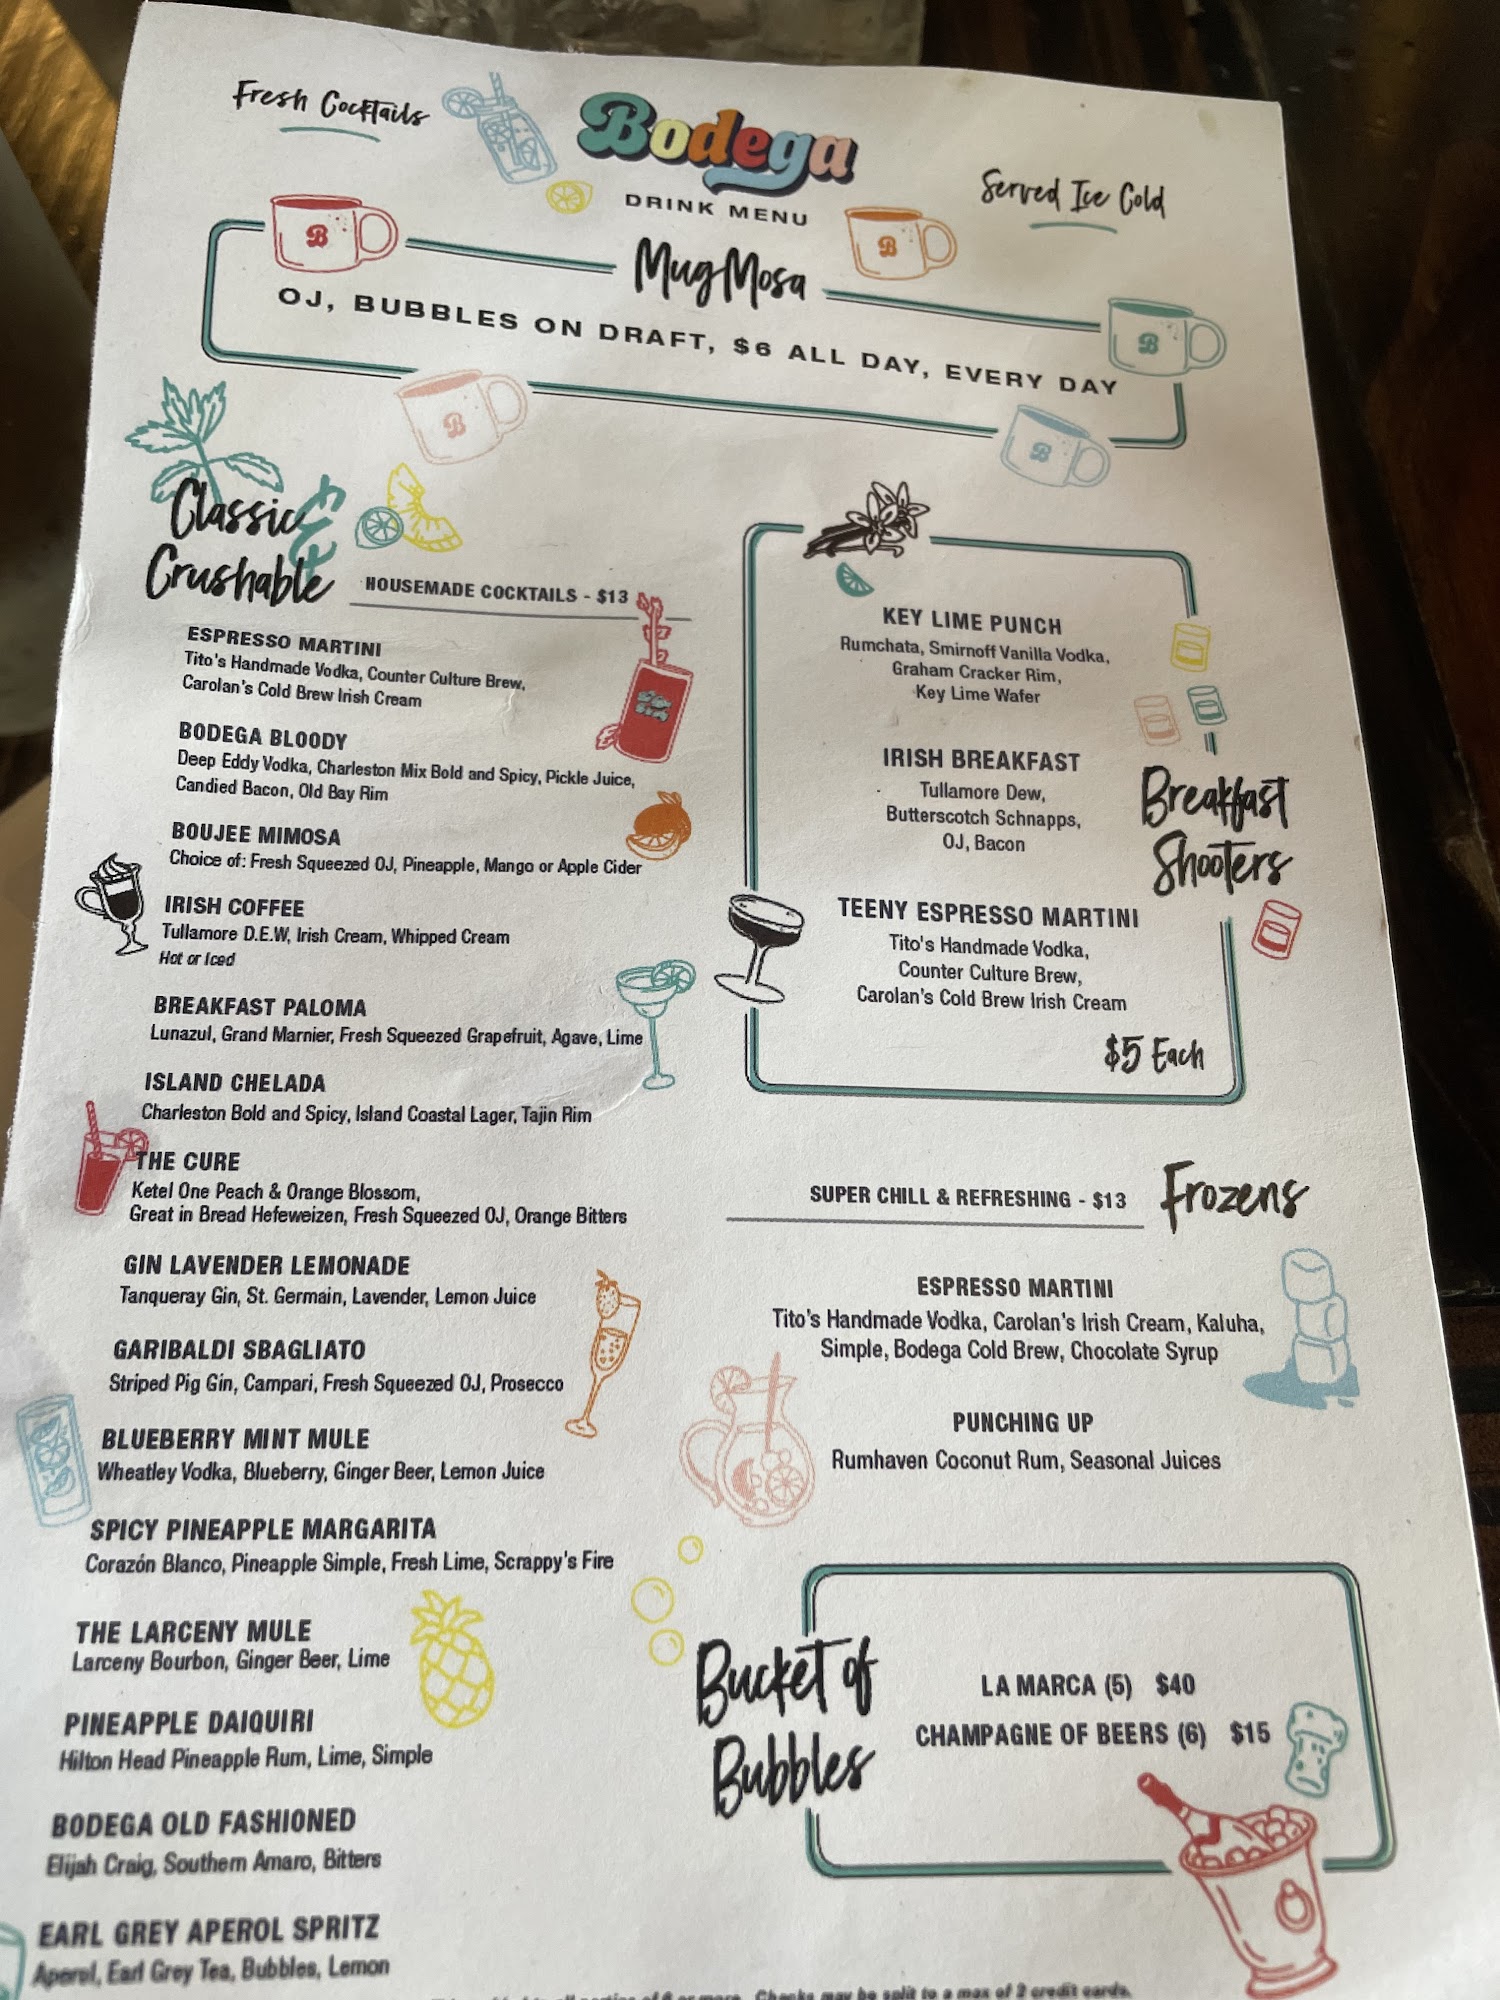 Fresh Cocktails
Bodega
DRINK MENU
Served Ice Cold
MugMosa
OJ, BUBBLES ON DRAFT, $6 ALL DAY, EVERY DAY
B
B
B
B
B
Classic &
Crushable
HOUSEMADE COCKTAILS - $13
ESPRESSO MARTINI
Tito's Handmade Vodka, Counter Culture Brew,
Carolan's Cold Brew Irish Cream
BODEGA BLOODY
Deep Eddy Vodka, Charleston Mix Bold and Spicy, Pickle Juice,
Candied Bacon, Old Bay Rim
BOUJEE MIMOSA
Choice of: Fresh Squeezed OJ, Pineapple, Mango or Apple Cider
IRISH COFFEE
Tullamore D.E.W, Irish Cream, Whipped Cream
Hot or Iced
BREAKFAST PALOMA
Lunazul, Grand Marnier, Fresh Squeezed Grapefruit, Agave, Lime
ISLAND CHELADA
Charleston Bold and Spicy, Island Coastal Lager, Tajin Rim
THE CURE
Ketel One Peach & Orange Blossom,
Great in Bread Hefeweizen, Fresh Squeezed OJ, Orange Bitters
GIN LAVENDER LEMONADE
Tanqueray Gin, St. Germain, Lavender, Lemon Juice
GARIBALDI SBAGLIATO
Striped Pig Gin, Campari, Fresh Squeezed OJ, Prosecco
BLUEBERRY MINT MULE
Wheatley Vodka, Blueberry, Ginger Beer, Lemon Juice
SPICY PINEAPPLE MARGARITA
Corazón Blanco, Pineapple Simple, Fresh Lime, Scrappy's Fire
THE LARCENY MULE
Larceny Bourbon, Ginger Beer, Lime
PINEAPPLE DAIQUIRI
Hilton Head Pineapple Rum, Lime, Simple
BODEGA OLD FASHIONED
Elijah Craig, Southern Amaro, Bitters
EARL GREY APEROL SPRITZ
Aperol, Earl Grey Tea, Bubbles, Lemon
KEY LIME PUNCH
Rumchata, Smirnoff Vanilla Vodka,
Graham Cracker Rim,
Key Lime Wafer
IRISH BREAKFAST
Tullamore Dew,
Butterscotch Schnapps,
OJ, Bacon
Breakfast
Shooters
TEENY ESPRESSO MARTINI
Tito's Handmade Vodka,
Counter Culture Brew,
Carolan's Cold Brew Irish Cream
$5 Each
SUPER CHILL & REFRESHING - $13
Frozens
ESPRESSO MARTINI
Tito's Handmade Vodka, Carolan's Irish Cream, Kaluha,
Simple, Bodega Cold Brew, Chocolate Syrup
PUNCHING UP
Rumhaven Coconut Rum, Seasonal Juices
Bucket of
Bubbles
LA MARCA (5) $40
CHAMPAGNE OF BEERS (6) $15
or more. Checks may be split to a max of 2 credit cards.